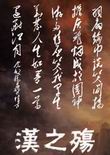 羽扇綸巾談笑間檣
櫓灰飛煙滅故國神
遊多情應笑我早生
華髮人生如夢一尊
還酹江月
漢之殤